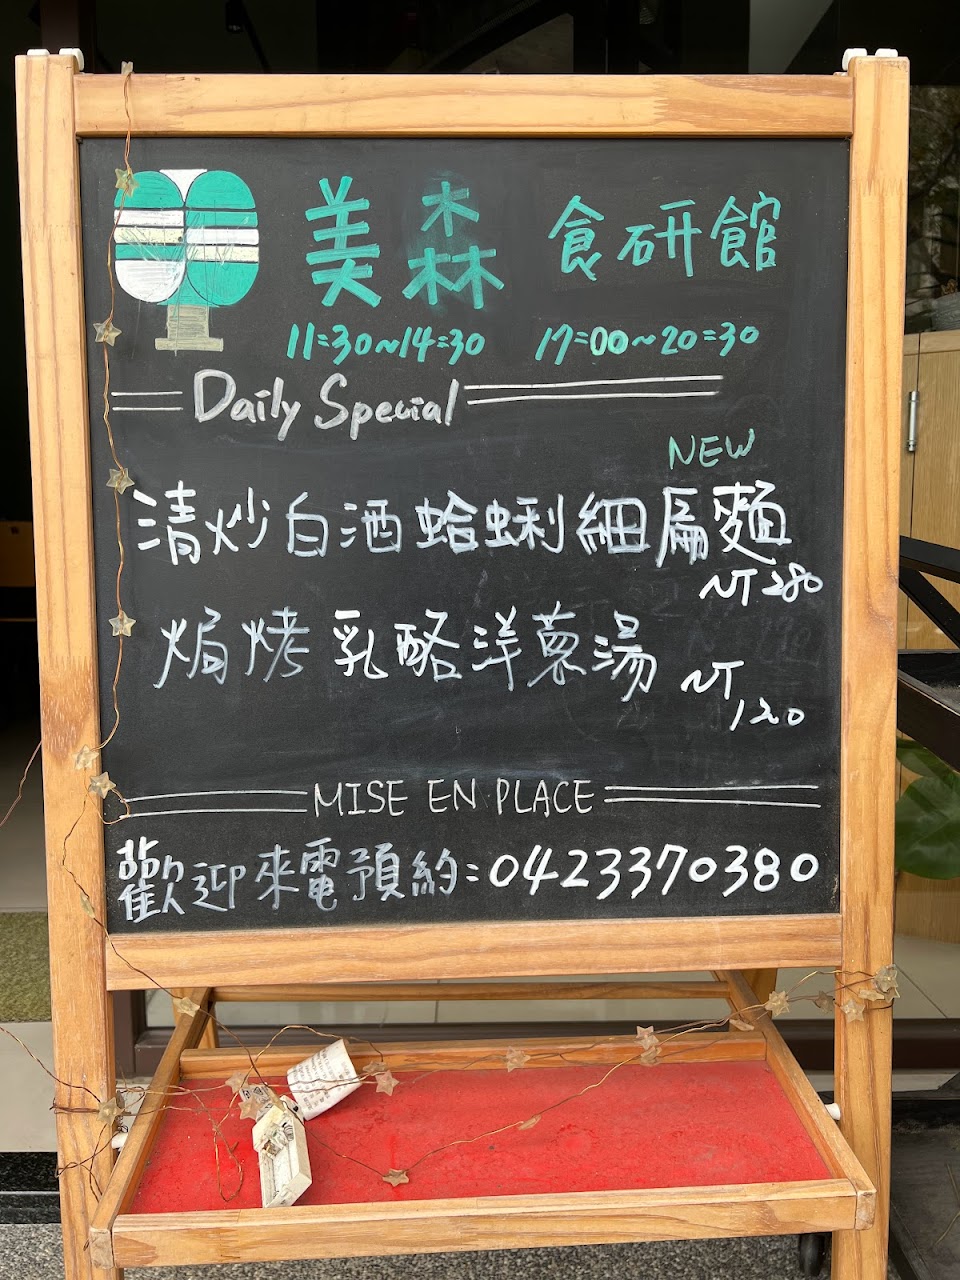 美森 食研館
11:30~14:30 17:00~20:30
Daily Special
NEW
清炒白酒蛤蜊細扁麵
NT 280
焗烤乳酪洋蔥湯
NT 120
MISE EN PLACE
歡迎來電預約:0423370380